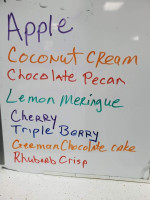 Apple
Coconut Cream
Chocolate Pecan
Lemon Meringue
Cherry
Triple Berry
German Chocolate cake
Rhubarb Crisp